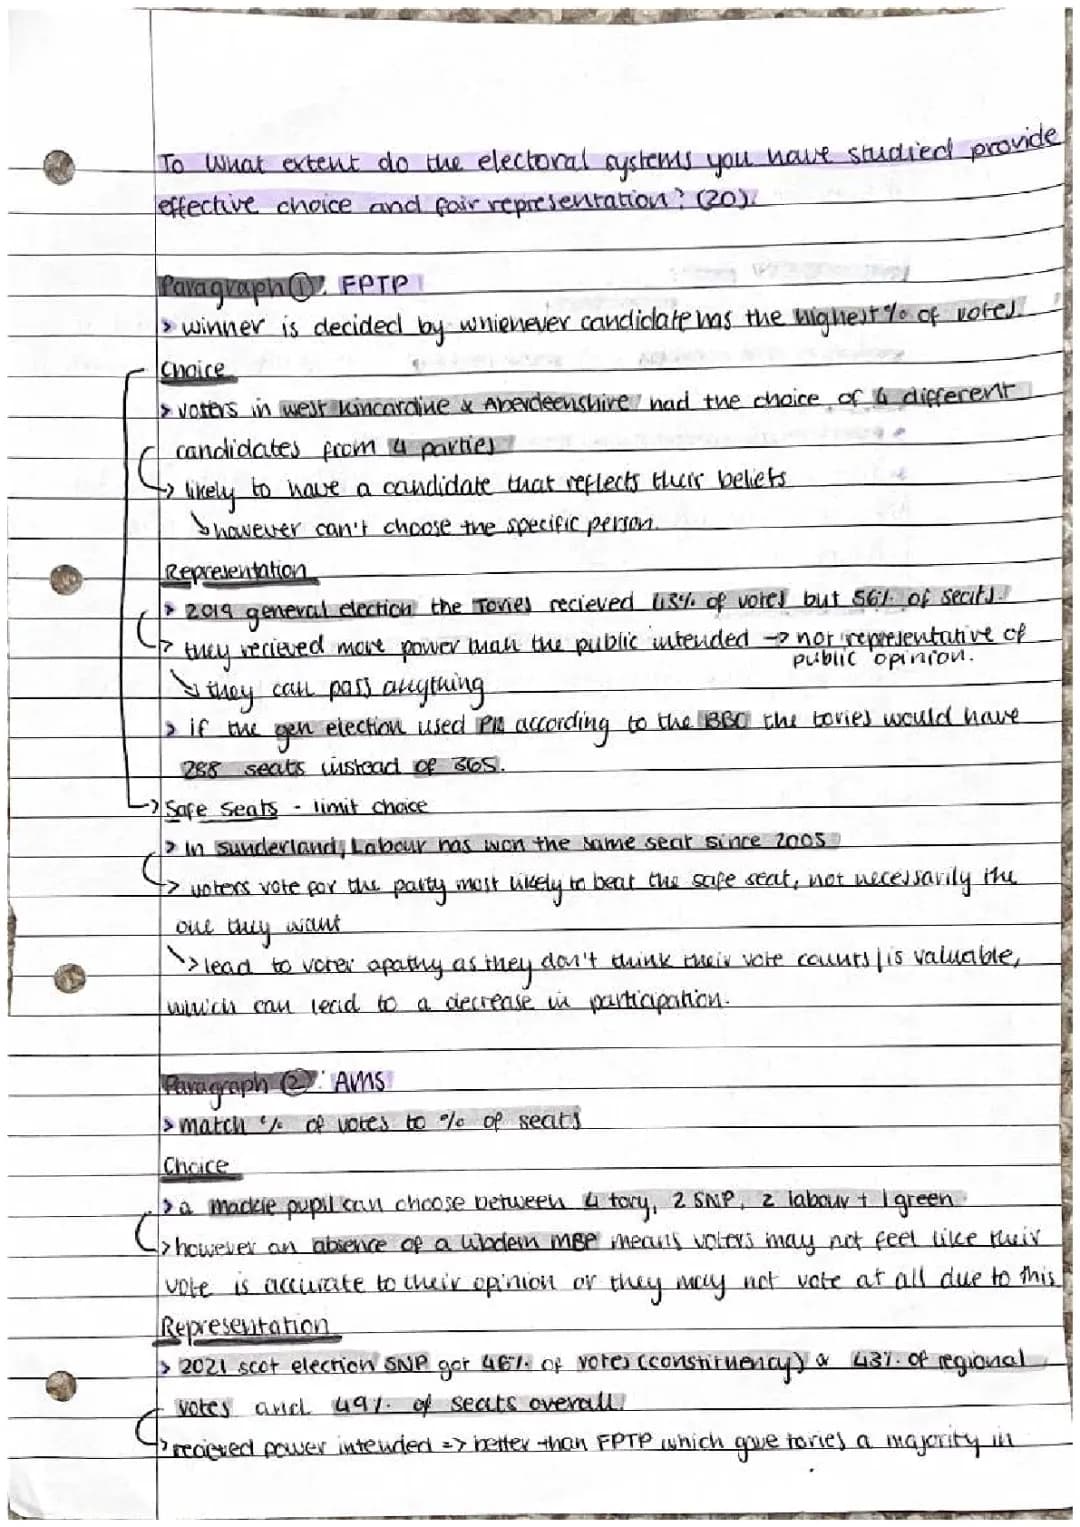 To What extent do the electoral systems you have studied provide
effective choice and fair representation? (20).
Paragraph ①: FPTP
> winner is decided by whienever candidate has the highest % of votes.
Choice
> voters in west Kincardine & Aberdeenshire had the choice of 4 different
candidates from 4 parties
↳ likely to have a candidate that reflects their beliefs
↳ however can't choose the specific person.
Representation
> 2019 general election the Tories recieved 43% of votes but 56% of seats.
↳ they recieved more power than the public intended → not representative of
public opinion.
↳ they can pass anything
> if the gen election used PR according to the BBC the tories would have
288 seats instead of 365.
→ Safe Seats - limit choice
> In Sunderland, Labour has won the same seat since 2005
↳ voters vote for the party most likely to beat the safe seat, not necessarily the
one they want
↳ lead to voter apathy as they don't think their vote counts/is valuable,
which can lead to a decrease in participation.
Paragraph ②: AMS
> match % of votes to % of seats
Choice
> a mackie pupil can choose between 4 tory, 2 SNP, 2 labour + 1 green
↳ however an absence of a libdem MSP means voters may not feel like their
vote is accurate to their opinion or they may not vote at all due to this
Representation
> 2021 scot election SNP got 46% of votes (constituency) & 43% of regional
votes and 49% of seats overall.
↳ recieved power intended => better than FPTP which gave tories a majority in